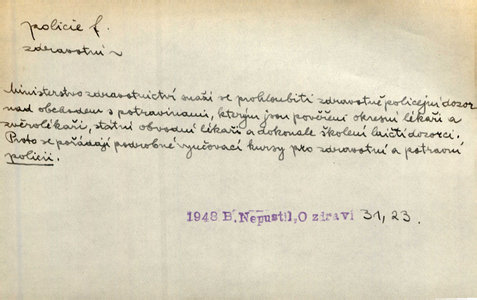 policie f.
zdravotní ~
Ministerstvo zdravotnictví snaží se prohloubiti zdravotně policejní dozor
nad obchodem s potravinami, kterým jsou pověřeni okresní lékaři a
zvěrolékaři, státní obvodní lékaři a dokonale školení laičtí dozorci.
Proto se pořádají podrobné vyučovací kursy pro zdravotní a potravní
policii.
1948 B. Nepustil, O zdraví 31, 23.